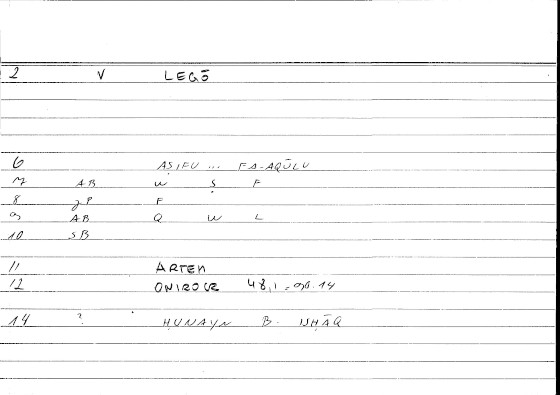 2 V LEGŌ
6 AṢIFU ... FA-AQŪLU
7 AB W Ṣ F
8 gP F
9 AB Q W L
10 SB
11 ARTEM
12 ONIROCR 48,1 = 90.14
14 ? ḤUNAYN B. ISḤĀQ